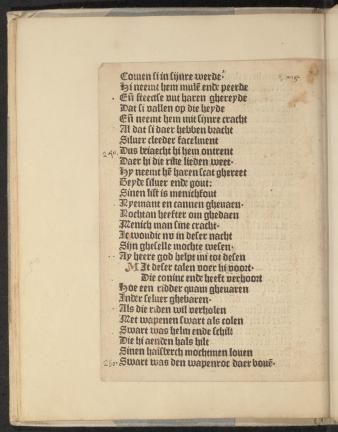 Comen si in sijnre werde·
Hi neemt hem mulē ende peerde
Eñ steectse vut haren ghereyde
Dat si vallen op die heyde
Eñ neemt hem mit sijnre cracht
Al dat si daer hebben bracht
Siluer cleeder facelment
240. Dus briaecht hi hem ontrent
Daer hi die rike lieden weet·
Hy neemt hē haren scat ghereet
Beyde siluer ende gout:
Sinen list is menichfout
Nyemant en cannen ghevaen·
Nochtan heefter om ghedaen
Menich man sine cracht·
Ic woudic nv in deser nacht
Sijn gheselle mochte wesen·
Ay heere god helpt mi tot desen
MIt deser talen voer hi voort·
Die coninc ende heeft verhoort
Hoe een ridder quam ghevaren
Inder seluer ghebaren·
Als die riden wil verholen
Met wapenen swart als colen
Swart was helm ende schilt
Die hi aenden hals hilt
Sinen halsberch mochtmen louen
260. Swart was den wapenroc daer bouē·